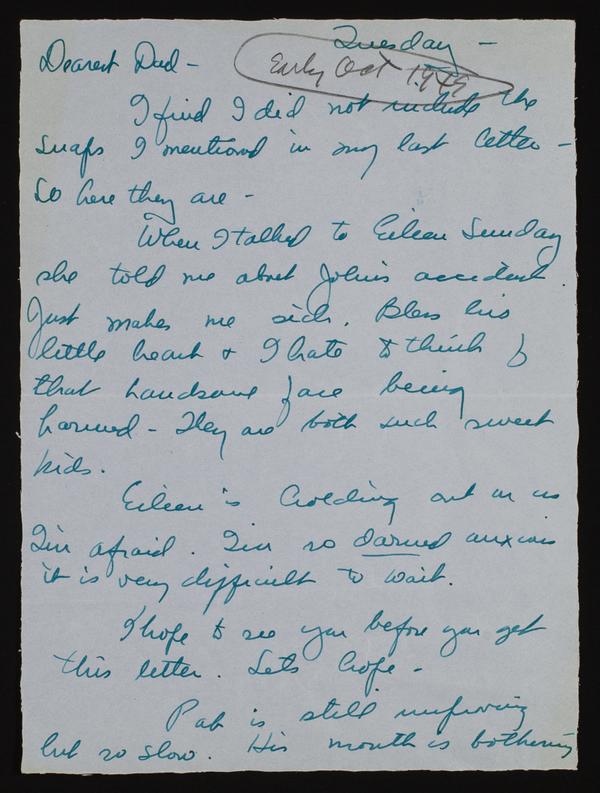 Tuesday -
Early Oct 1949
Dearest Dad -
I find I did not include the
snaps I mentioned in my last letter -
So here they are -
When I talked to Eileen Sunday
she told me about John's accident.
Just makes me sick. Bless his
little heart & I hate to think of
that handsome face being
harmed - They are both such sweet
kids.
Eileen is holding out on us
I'm afraid. I'm so darned anxious
it is very difficult to wait.
I hope to see you before you get
this letter. Lets hope -
Pat is still improving
but so slow. His mouth is bothering